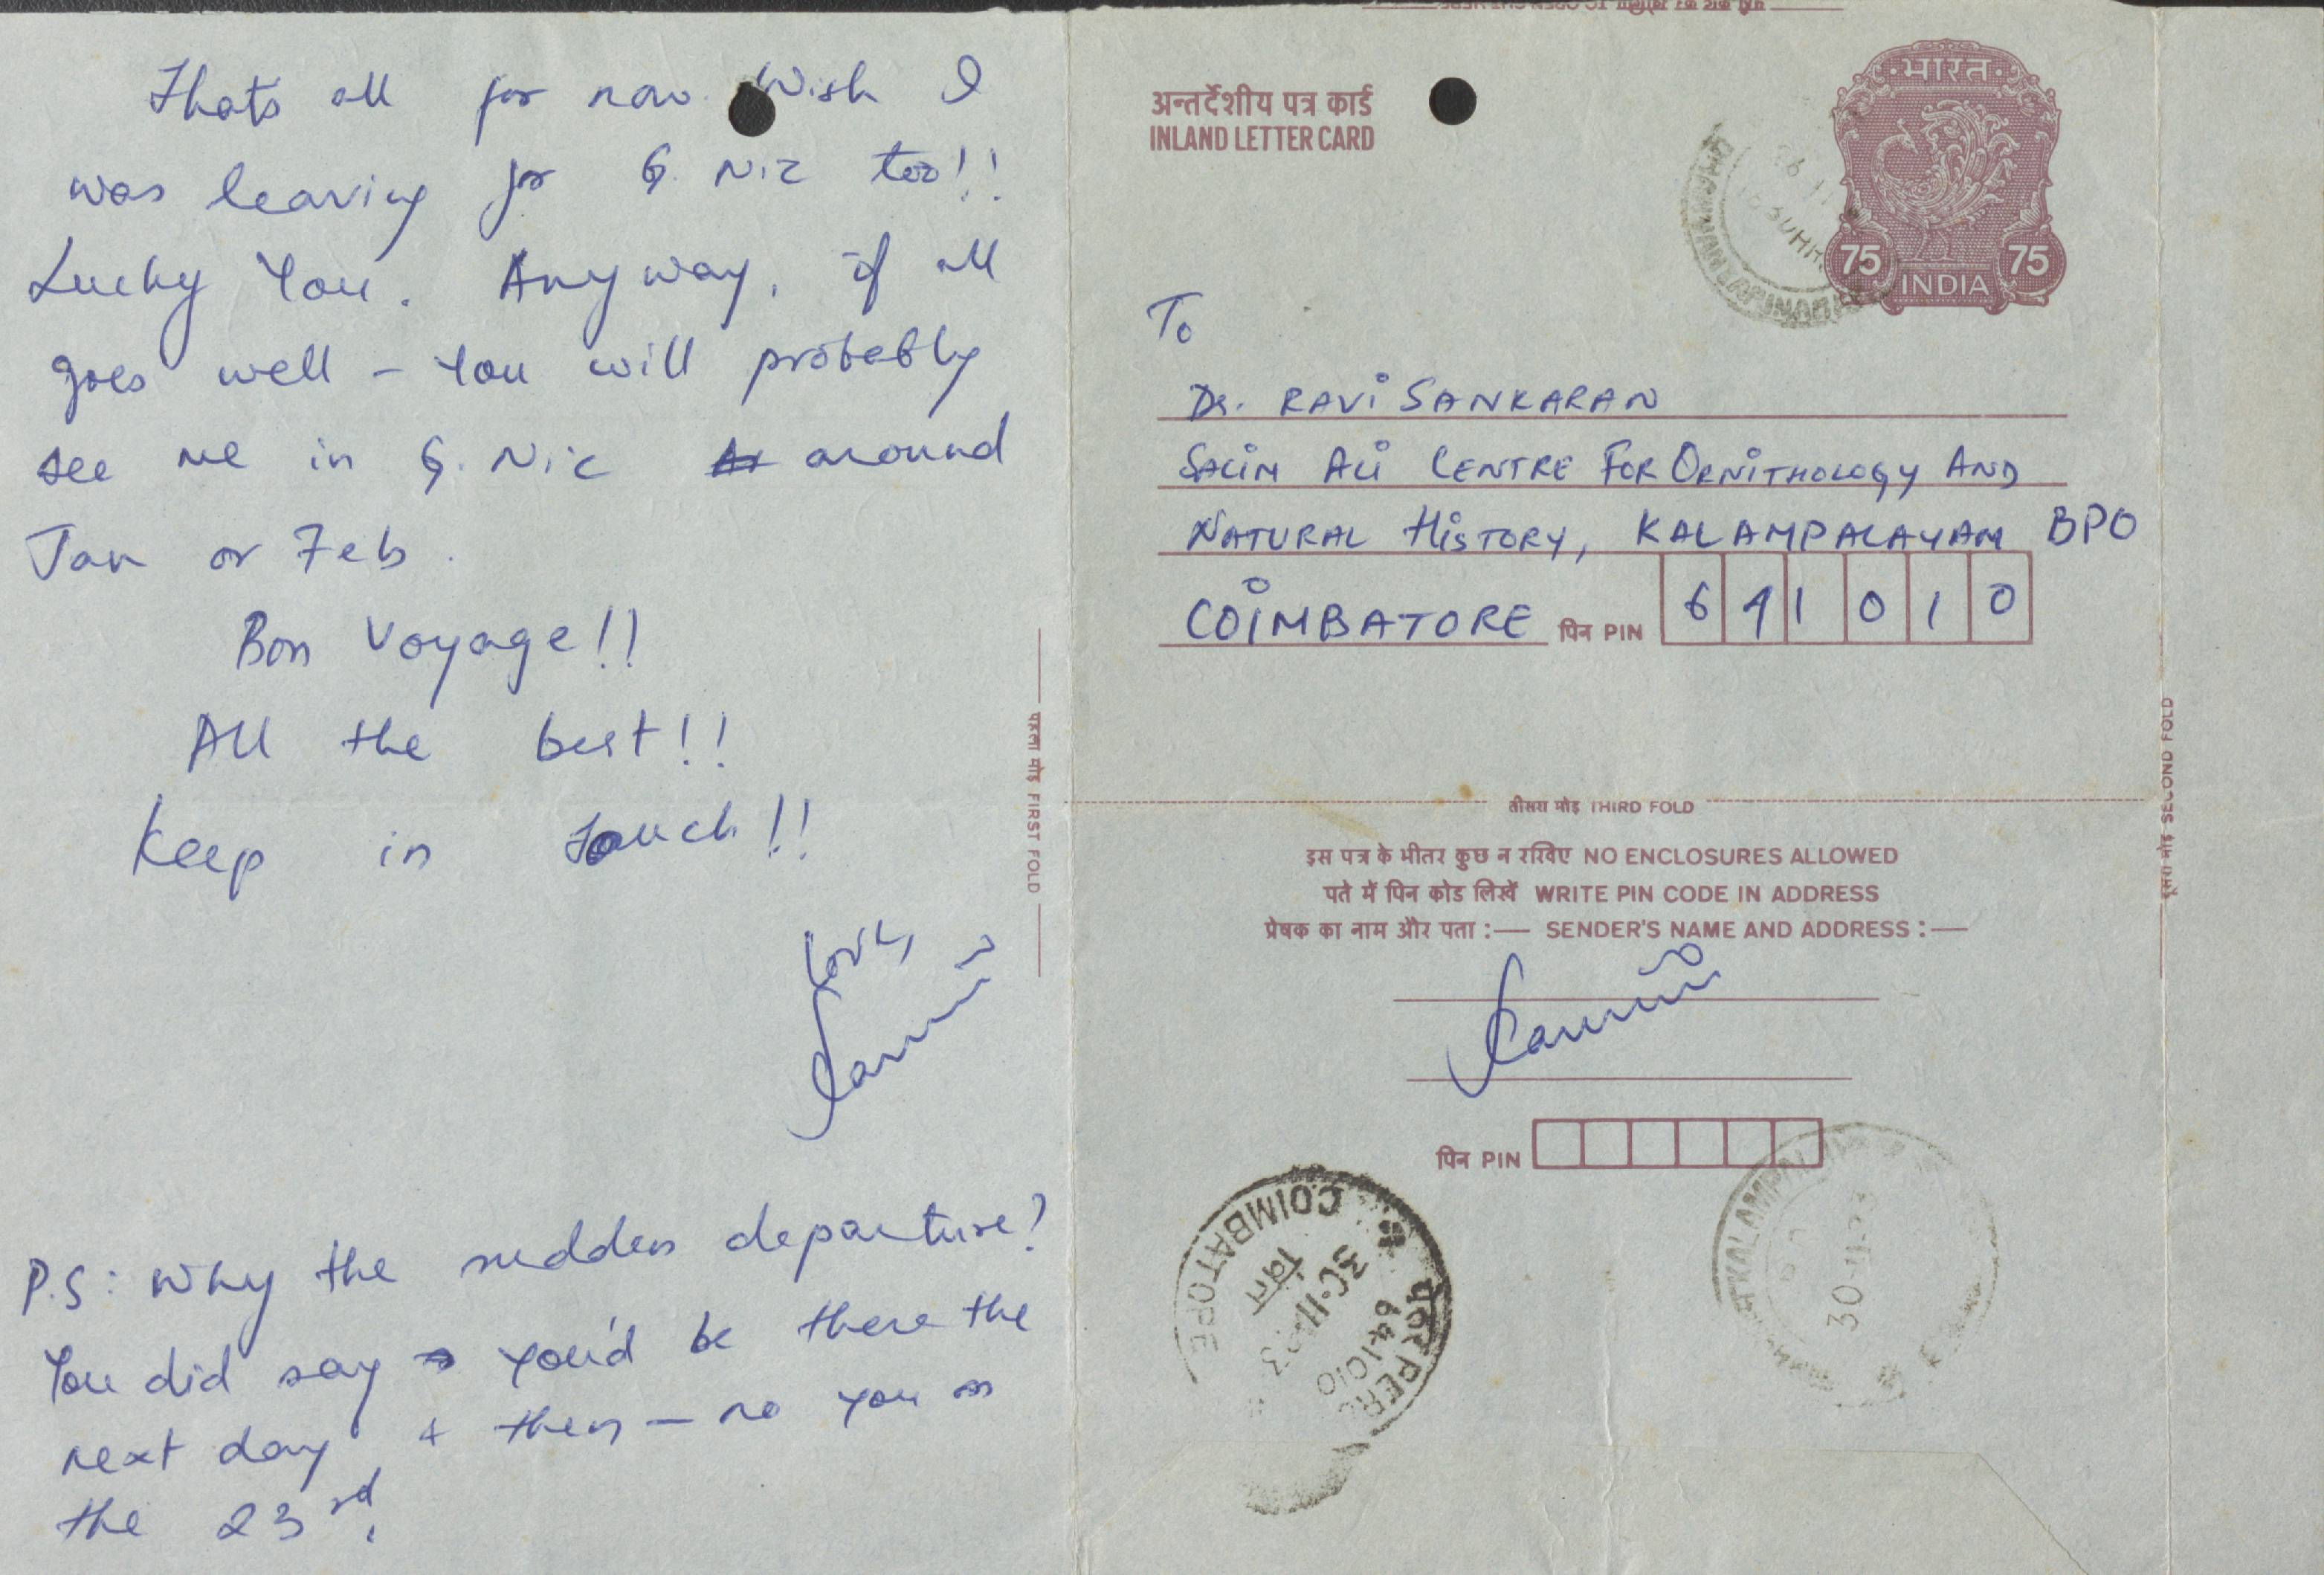 Thats all for now. Wish I
was leaving for G. Nic too!!
Lucky You. Anyway, if all
goes well - You will probably
see me in G. Nic around
Jan or Feb.
Bon Voyage!!
All the best!!
Keep in touch!!
Love,
P.S: Why the sudden departure?
You did say you'd be there the
next day & then - no you on
the 23rd.
पहला मोड़ FIRST FOLD
अन्तर्देशीय पत्र कार्ड
INLAND LETTER CARD
भारत
75 75
INDIA
To
Dr. RAVI SANKARAN
SALIM ALI CENTRE FOR ORNITHOLOGY AND
NATURAL HISTORY, KALAMPALAYAM BPO
COIMBATORE पिन PIN 641010
दूसरा मोड़ SECOND FOLD
तीसरा मोड़ THIRD FOLD
इस पत्र के भीतर कुछ न रखिए NO ENCLOSURES ALLOWED
पते में पिन कोड लिखें WRITE PIN CODE IN ADDRESS
प्रेषक का नाम और पता :— SENDER'S NAME AND ADDRESS :—
पिन PIN
COIMBATORE
30.11.93
641010
KALAMPALAYAM
30-11-93